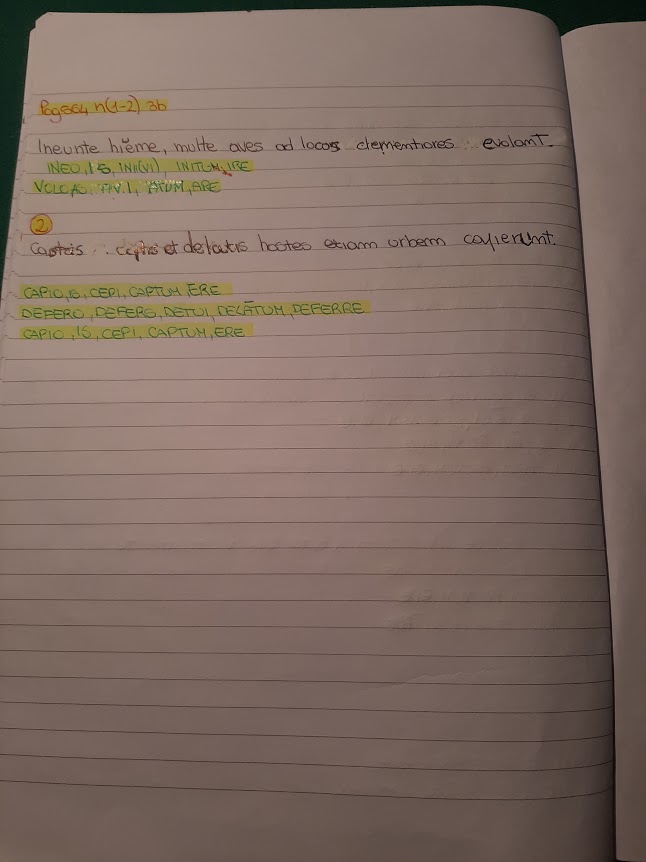 Pag 564 n(1-2) 3b
Ineunte hiĕme, multe aves ad locos clementiores evolant.
INEO, IS, INI(VI), INITUM, IRE
VOLO, AS, AVI, ATUM, ARE
2
Castris captis et delatis hostes etiam urbem capierunt.
CAPIO, IS, CEPI, CAPTUM, ĔRE
DEFERO, DEFERS, DETULI, DELĀTUM, DEFERRE
CAPIO, IS, CEPI, CAPTUM, ERE